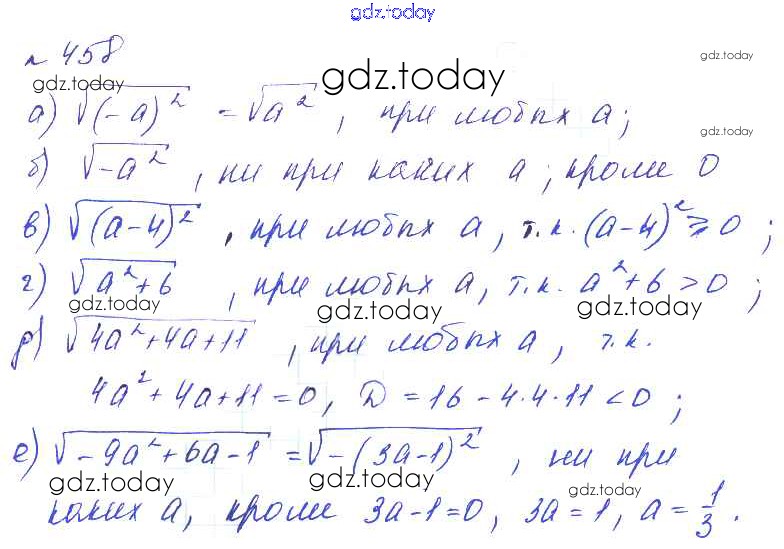 gdz.today
№ 458
gdz.today gdz.today gdz.today
а) √(-a)² = √a², при любых a;
gdz.today
б) √-a², ни при каких a; кроме 0
в) √(a-4)², при любых a, т.к. (a-4)² ≥ 0;
г) √a²+6, при любых a, т.к. a²+6 > 0;
gdz.today gdz.today gdz.today
д) √4a²+4a+11, при любых a, т.к.
4a²+4a+11=0, D=16-4·4·11<0;
е) √-9a²+6a-1 = √-(3a-1)², ни при
gdz.today gdz.today gdz.today
каких a, кроме 3a-1=0, 3a=1, a=1/3.